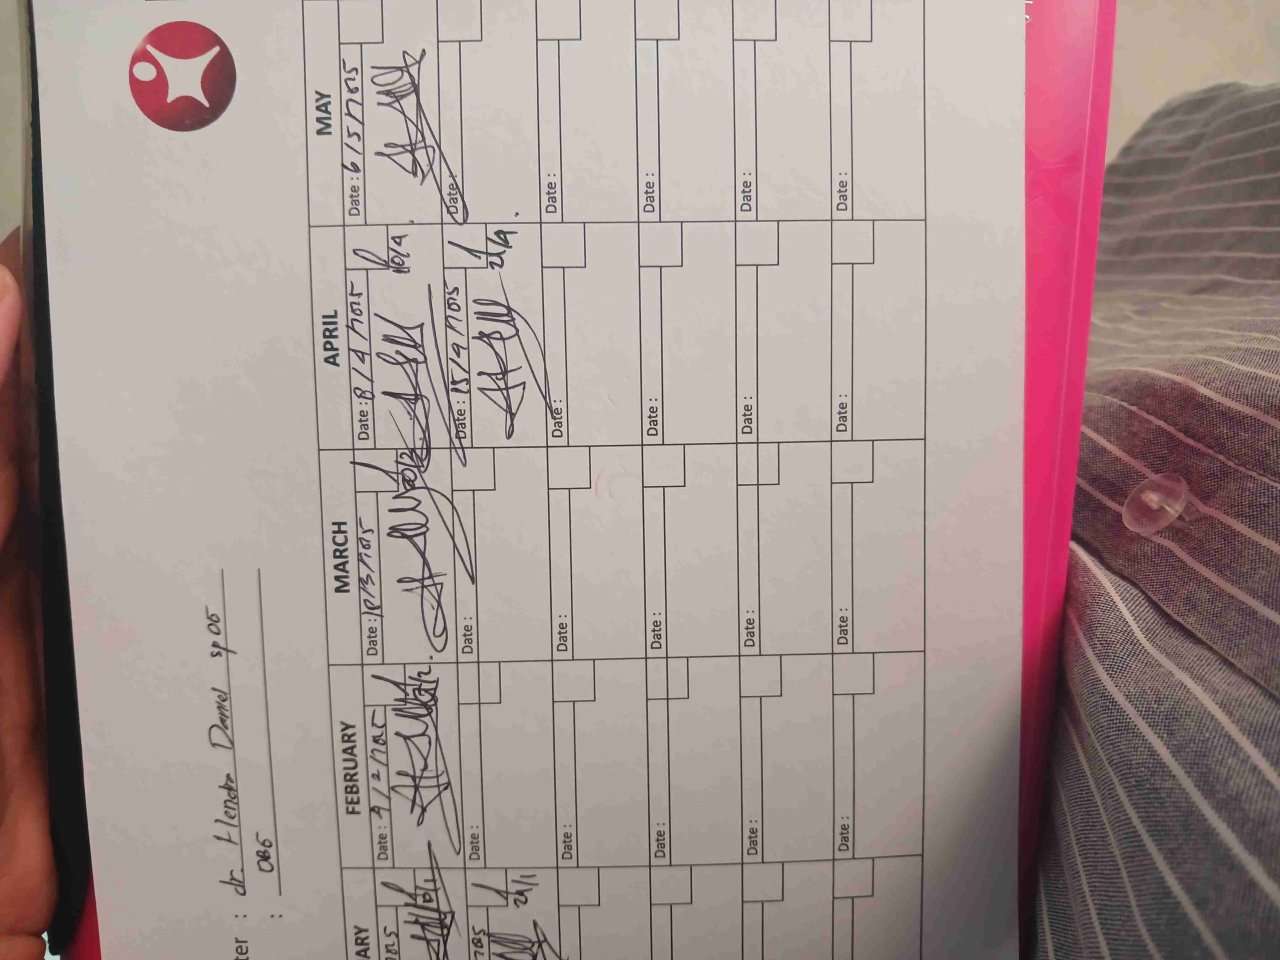 ter : dr. Hendra Daniel sp OG
: OBG
ARY FEBRUARY MARCH APRIL MAY
Date : 4/2/2025 Date : 10/3/2025 Date : 8/4/2025 Date : 6/5/2025
10/4
Date : Date : Date : 15/4/2025 Date :
21/1 21/4
Date : Date : Date : Date :
Date : Date : Date : Date :
Date : Date : Date : Date :
Date : Date : Date : Date :